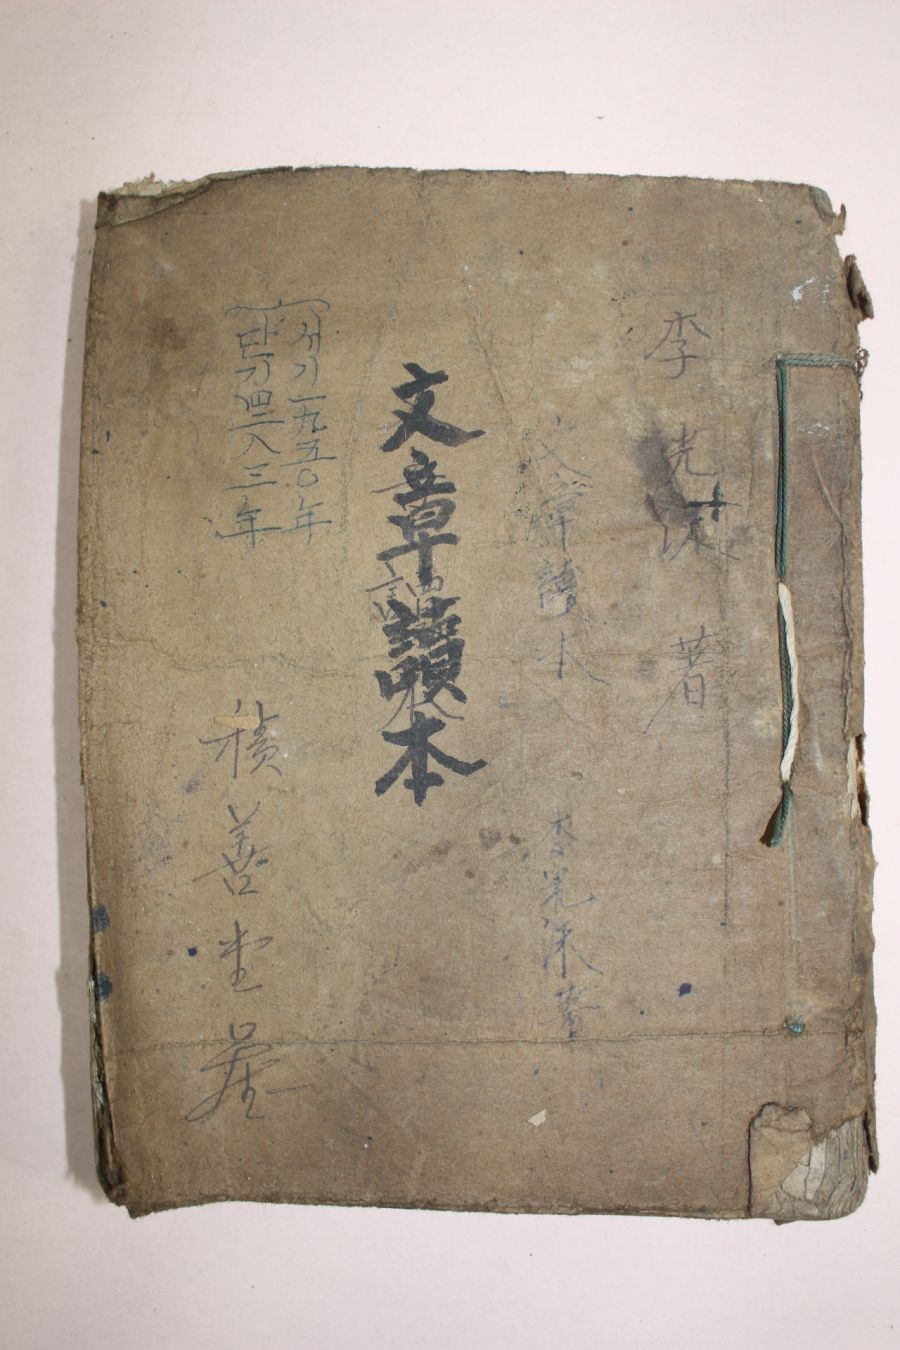 李光洙 著
文章讀本 李光洙 著
文章讀本
(서기一九五〇年
(단기四二八三年
積善堂